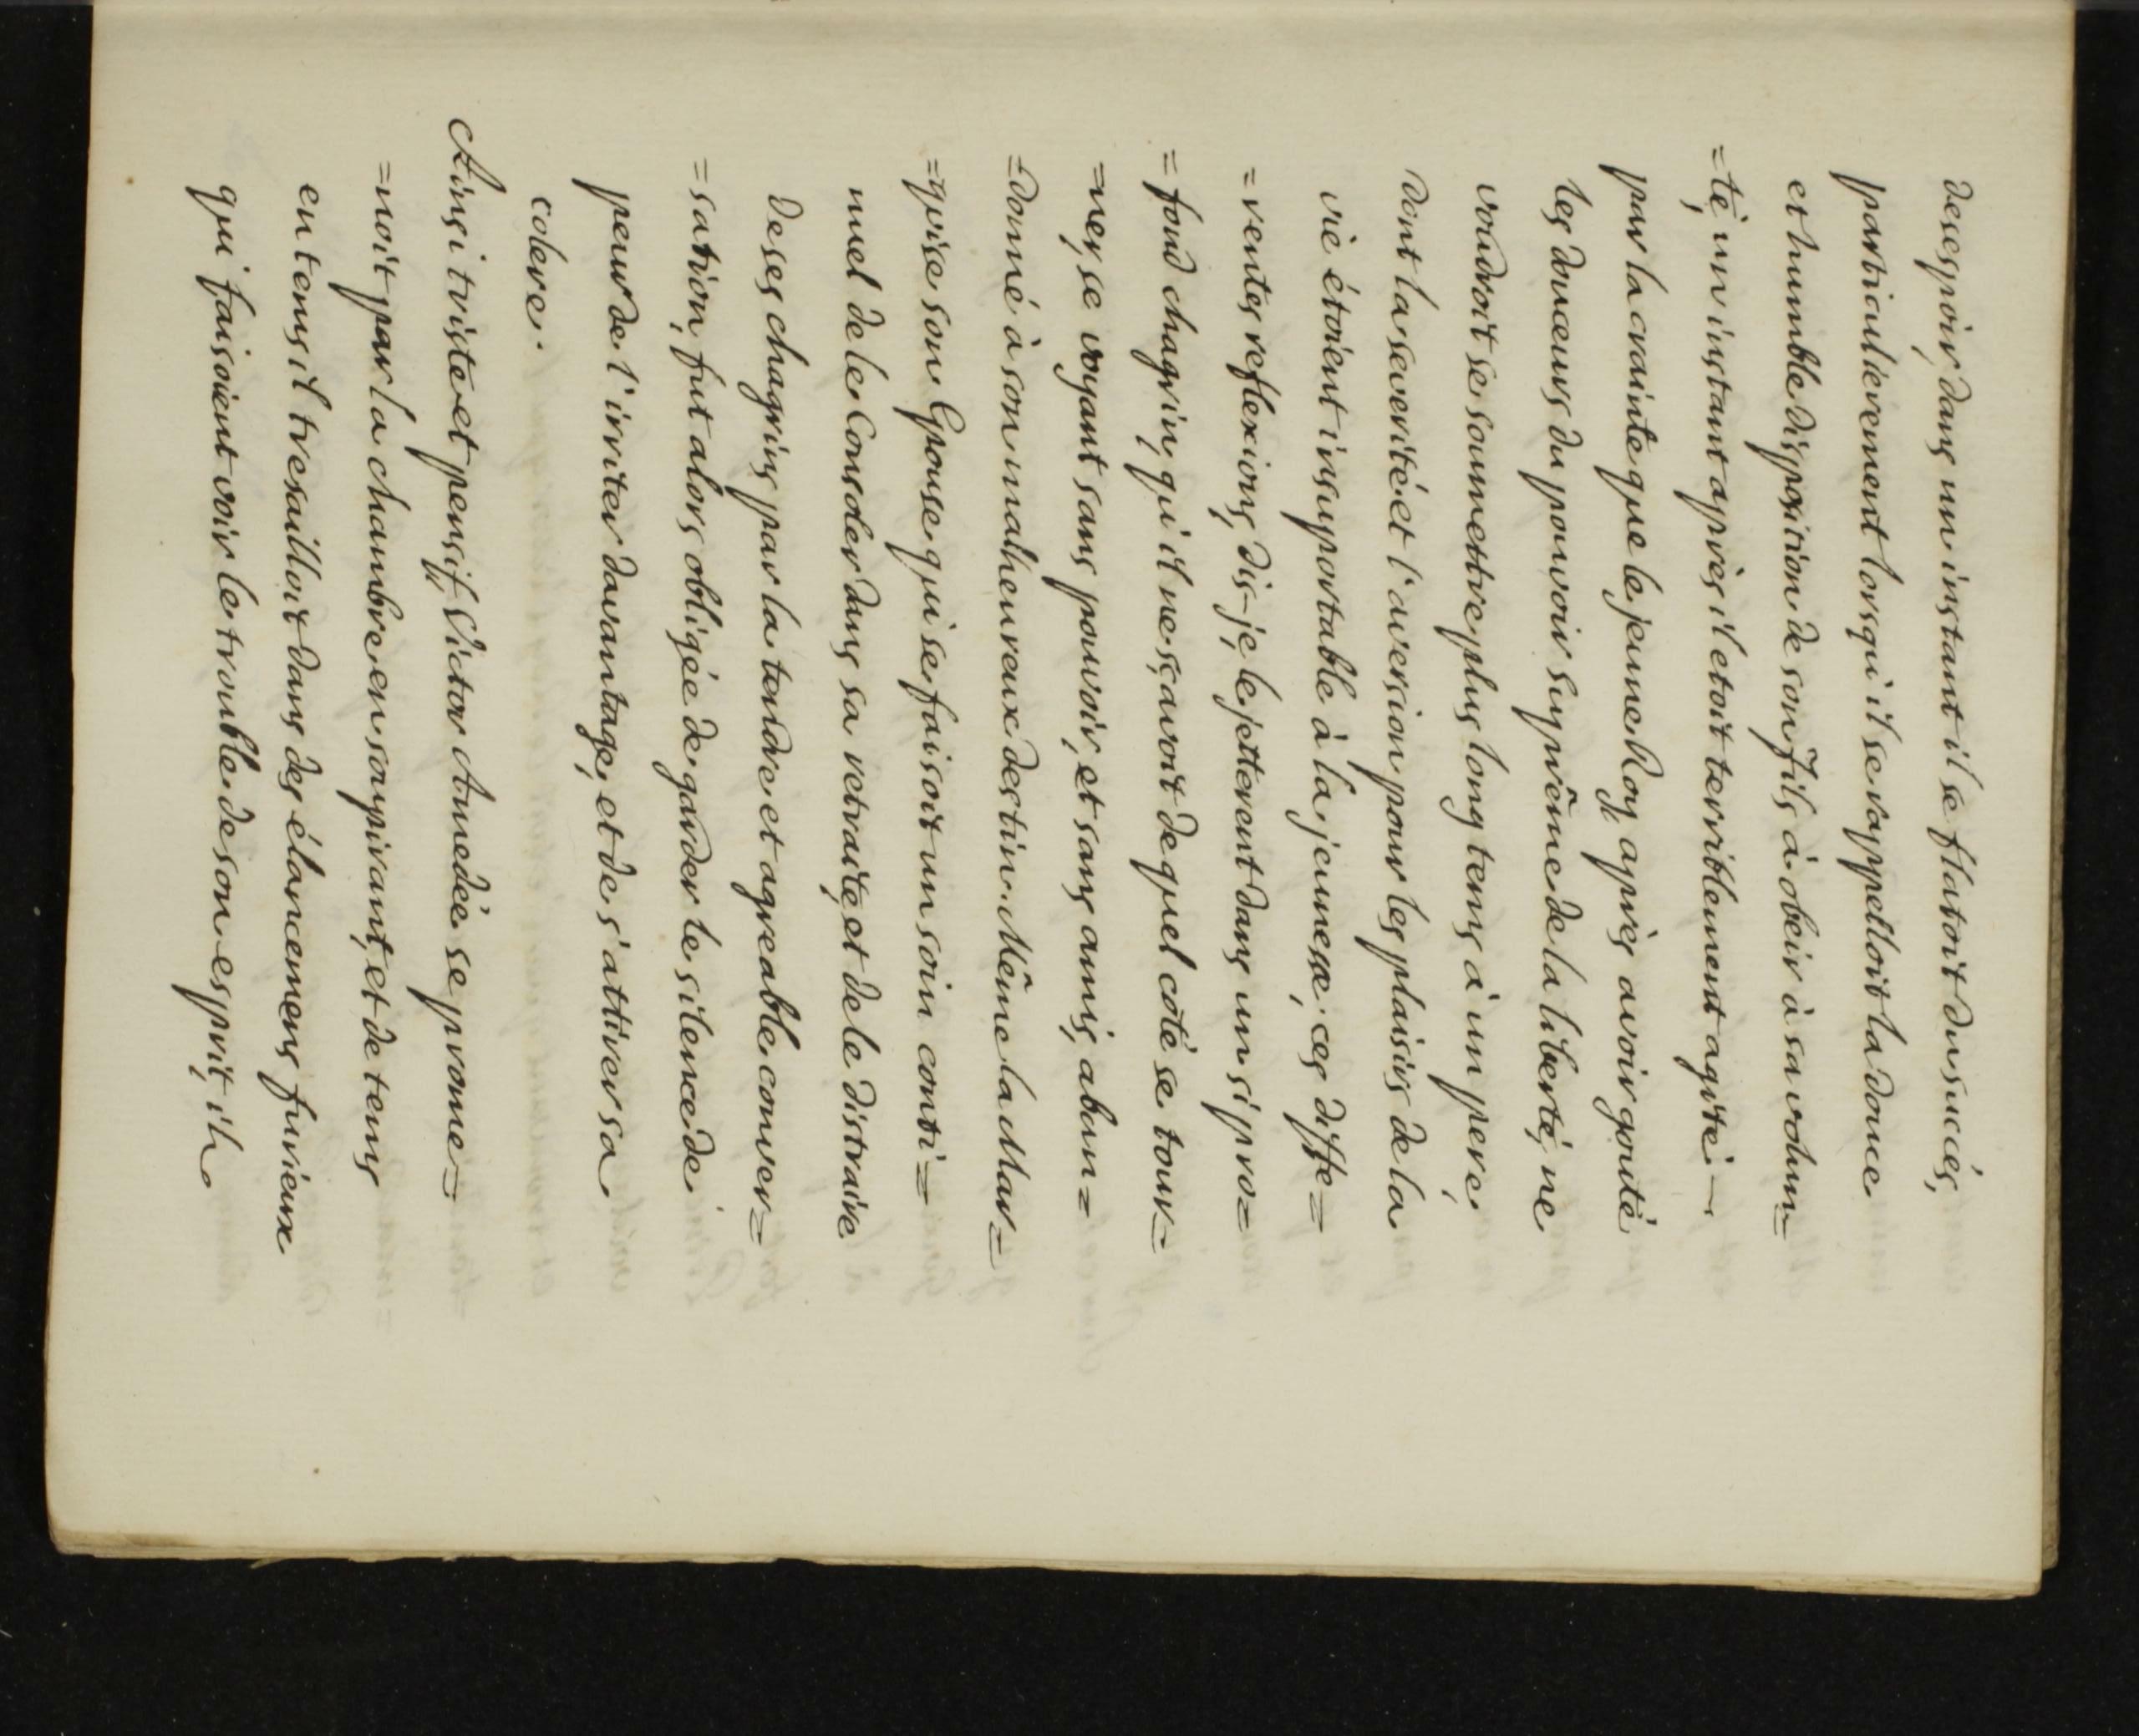 desespoir, dans un instant il se flatoit du succés,
particulierement lorsqu'il se rappelloit la douce
et humble disposition de son fils à obeir à sa volun=
=té, un instant après il etoit terriblement agité —
par la crainte que le jeune Roy, après avoir gouté
les douceurs du pouvoir suprême de la liberté, ne
voudroit se soumettre plus long tems à un pere,
dont la severité et l'aversion pour les plaisirs de la
vie étoient insuportable à la jeunesse, ces diffe=
=rentes reflexions, dis-je, le jetterent dans un si pro=
=fond chagrin, qu'il ne sçavoit de quel coté se tour=
=ner, se voyant sans pouvoir, et sans amis, aban=
=donné à son malheureux destin. Même la Mar=
=quise son Epouse qui se faisoit un soin conti=
nuel de le Consoler dans sa retraite, et de le distraire
de ses chagrins par la tendre et agreable conver=
=sation, fut alors obligée de garder le silence de
peur de l'irriter davantage, et de s'attirer sa
colere.
Ainsi triste et pensif, Victor Amedée se prome=
=noit par la chambre en soupirant, et de tems
en tems il tresailloit dans des élancemens furieux
qui faisoient voir le trouble de son esprit, il